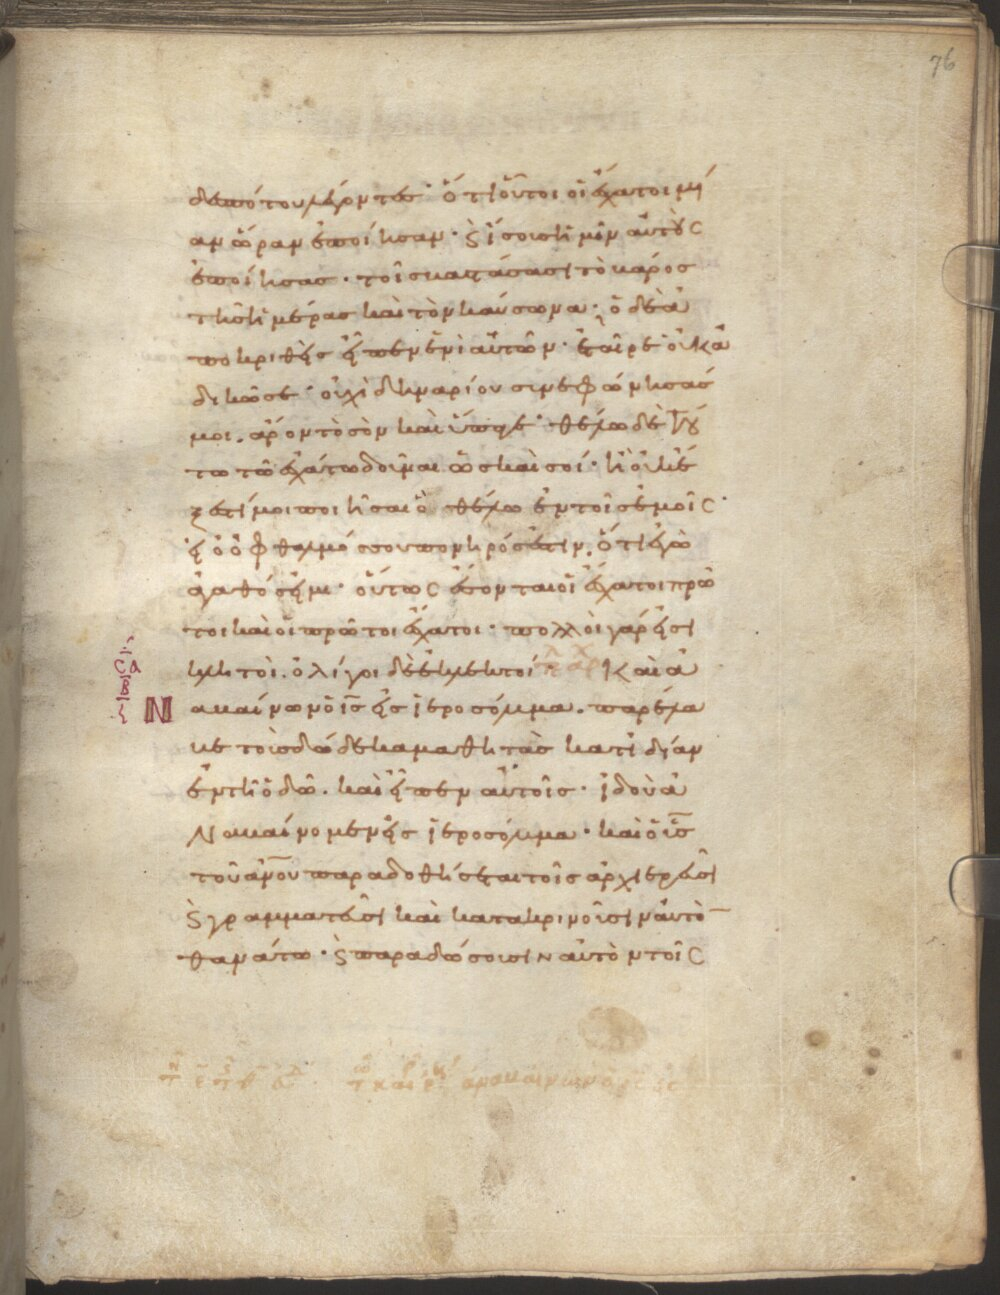 76
δεσπότου λέγοντες· ὅτι οὗτοι οἱ ἔσχατοι μί
αν ὥραν ἐποίησαν· ϗ ἴσους ἡμῖν αὐτοὺς
ἐποίησας· τοῖς βαστάσασι τὸ βάρος
τῆς ἡμέρας καὶ τὸν καύσωνα· ὁ δὲ ἀ
ποκριθεὶς εἶπεν ἑνὶ αὐτῶν· ἑταῖρε οὐκ ἀ
δικῶ σε· οὐχὶ δηναρίου συνεφώνησάς
μοι. ἆρον τὸ σὸν καὶ ὕπαγε· θέλω δὲ τού
τω τῶ ἐσχάτω δοῦναι ὡς καὶ σοί· ἢ οὐκ ἔ
ξεστί μοι ποιῆσαι ὃ θέλω ἐν τοῖς ἐμοῖς·
εἰ ὁ ὀφθαλμός σου πονηρός ἐστιν. ὅτι ἐγὼ
ἀγαθός εἰμι· οὕτως ἔσονται οἱ ἔσχατοι πρῶ
τοι καὶ οἱ πρῶτοι ἔσχατοι· πολλοὶ γάρ εἰσι
κλητοὶ. ὀλίγοι δὲ ἐκλεκτοί· Καὶ ἀ
Ν αβαίνων ὁ ι̅ς̅ εἰς ἱεροσόλυμα. παρέλα
βε τοὺς δώδεκα μαθητὰς κατιδίαν
ἐν τῆ ὁδῶ. καὶ εἶπεν αὐτοῖς· ἰδοὺ ἀ
ναβαίνομεν εἰς ἱεροσόλυμα· καὶ ὁ υ̅ς̅
τοῦ α̅ν̅ο̅υ̅ παραδοθήσεται τοῖς ἀρχιερεῦσι
ϗ γραμματεῦσι καὶ κατακρινοῦσιν αὐτὸ̅
θανάτω· ϗ παραδώσουσιν αὐτὸν τοῖς